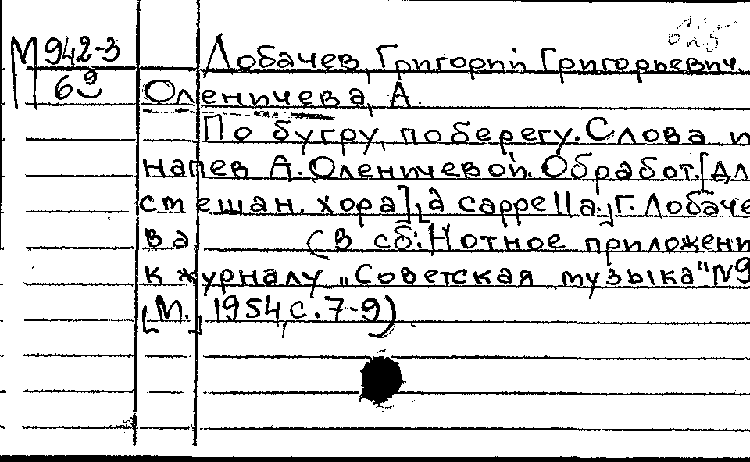 М 942-3
69
Лобачев, Григорий Григорьевич.
Оленичева, А.
По бугру, по берегу. Слова и
напев А. Оленичевой. Обработ. [дл
смешан. хора], a cappella., Г. Лобаче
ва (в сб.: Нотное приложени
к журналу „Советская музыка" №9
[М.], 1954, с. 7-9)